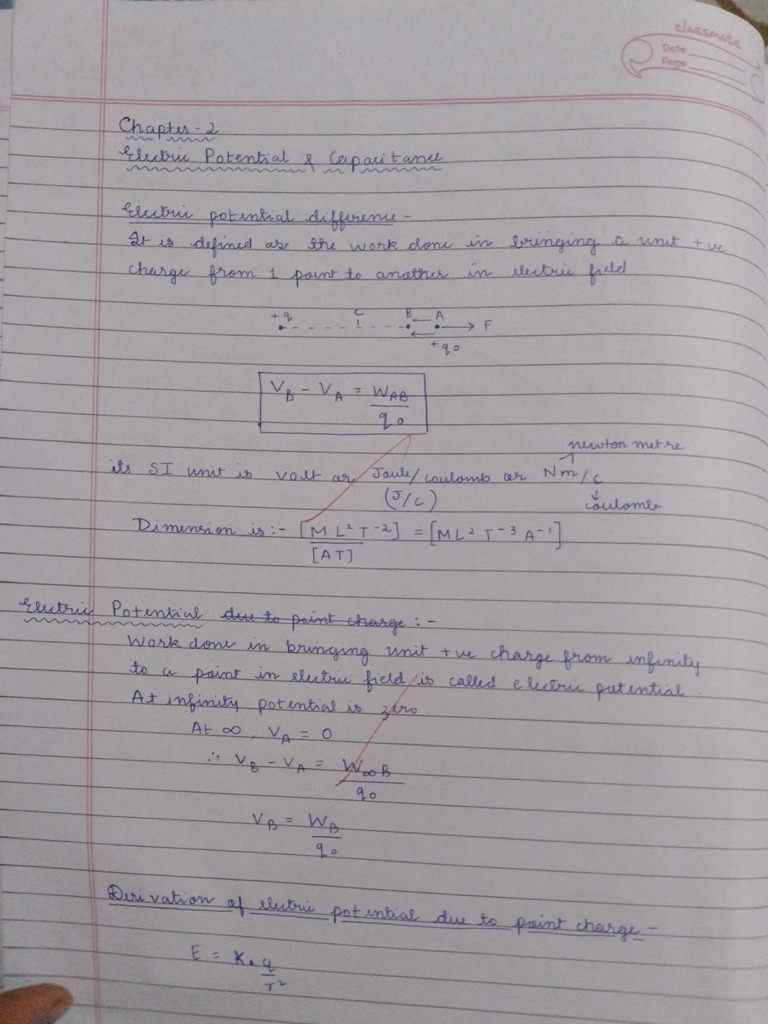 classmate
Date
Page
Chapter-2
Electric Potential & Capacitance
Electric potential difference -
It is defined as the work done in bringing a unit +ve
charge from 1 point to another in electric field
+q C B A F
+q₀
V_B - V_A = W_AB / q₀
newton metre
its SI unit is volt or Joule/coulomb or Nm/C
(J/C) coulomb
Dimension is:- [ML²T⁻²] / [AT] = [ML²T⁻³A⁻¹]
Electric Potential due to point charge :-
Work done in bringing unit +ve charge from infinity
to a point in electric field is called electric potential.
At infinity potential is zero.
At ∞, V_A = 0
∴ V_B - V_A = W_∞B / q₀
V_B = W_B / q₀
Derivation of electric potential due to point charge -
E = K. q / r²